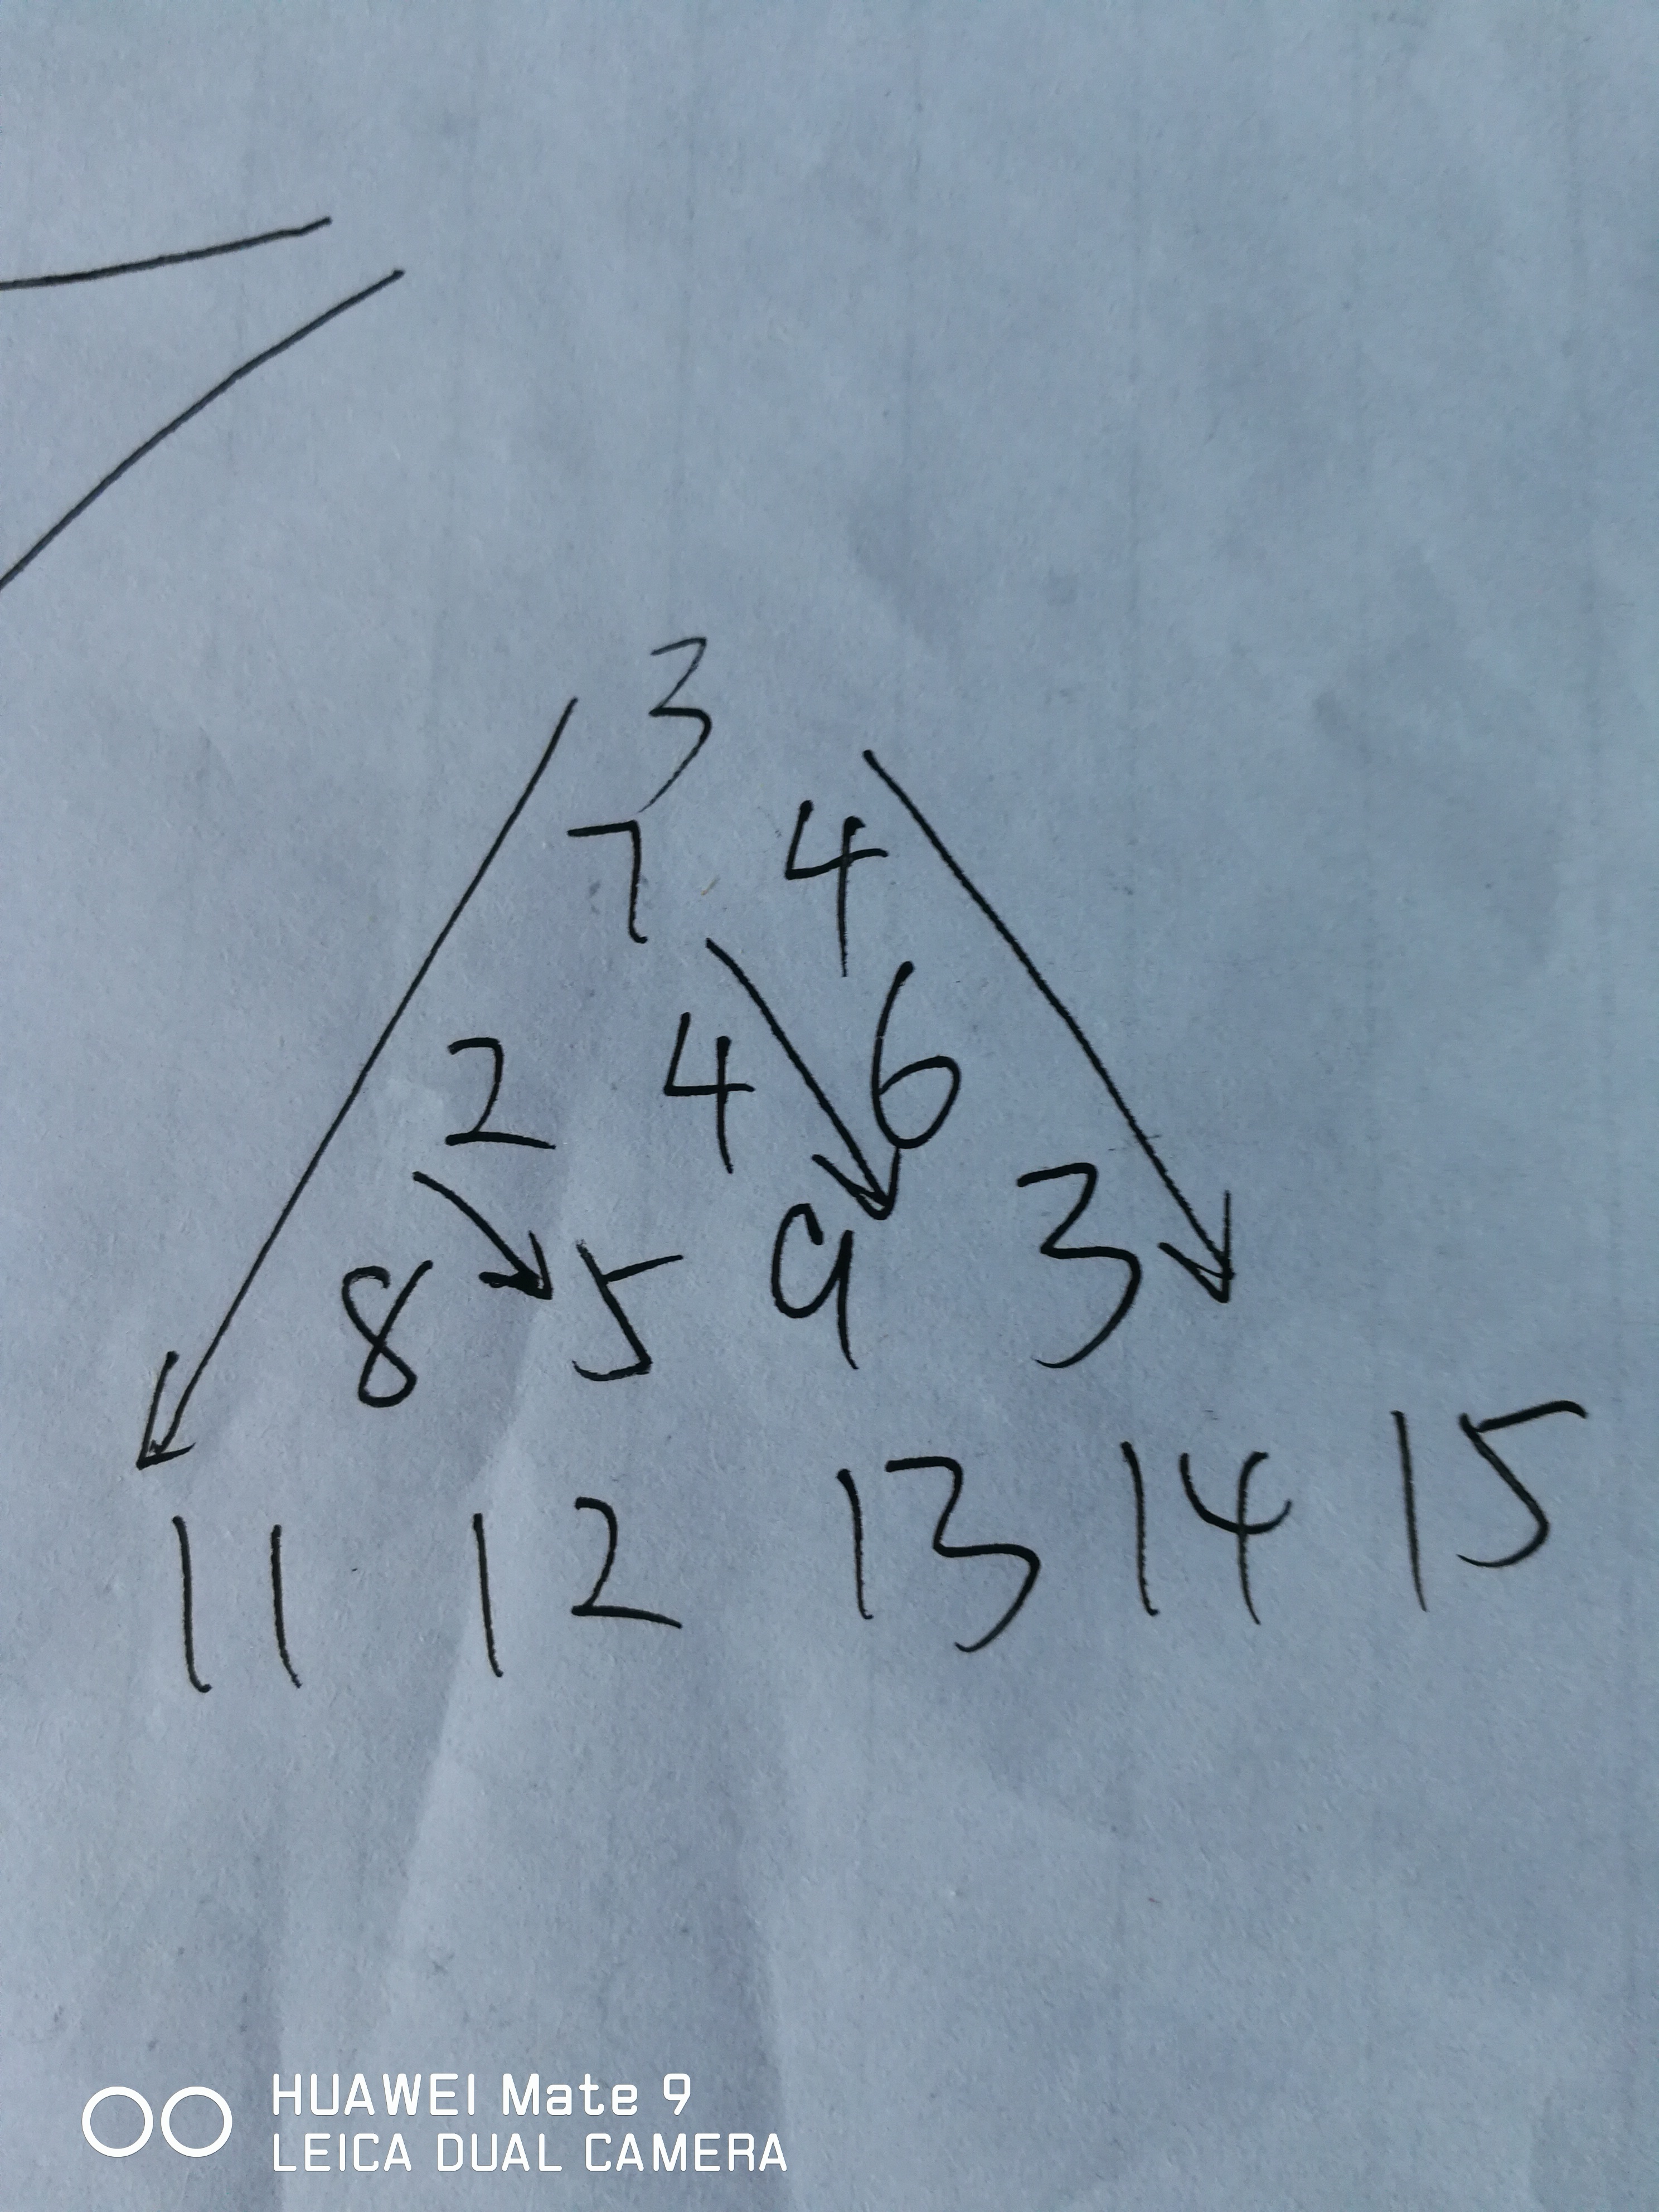 3
7 4
2 4 6
8 5 9 3
11 12 13 14 15
HUAWEI Mate 9
LEICA DUAL CAMERA